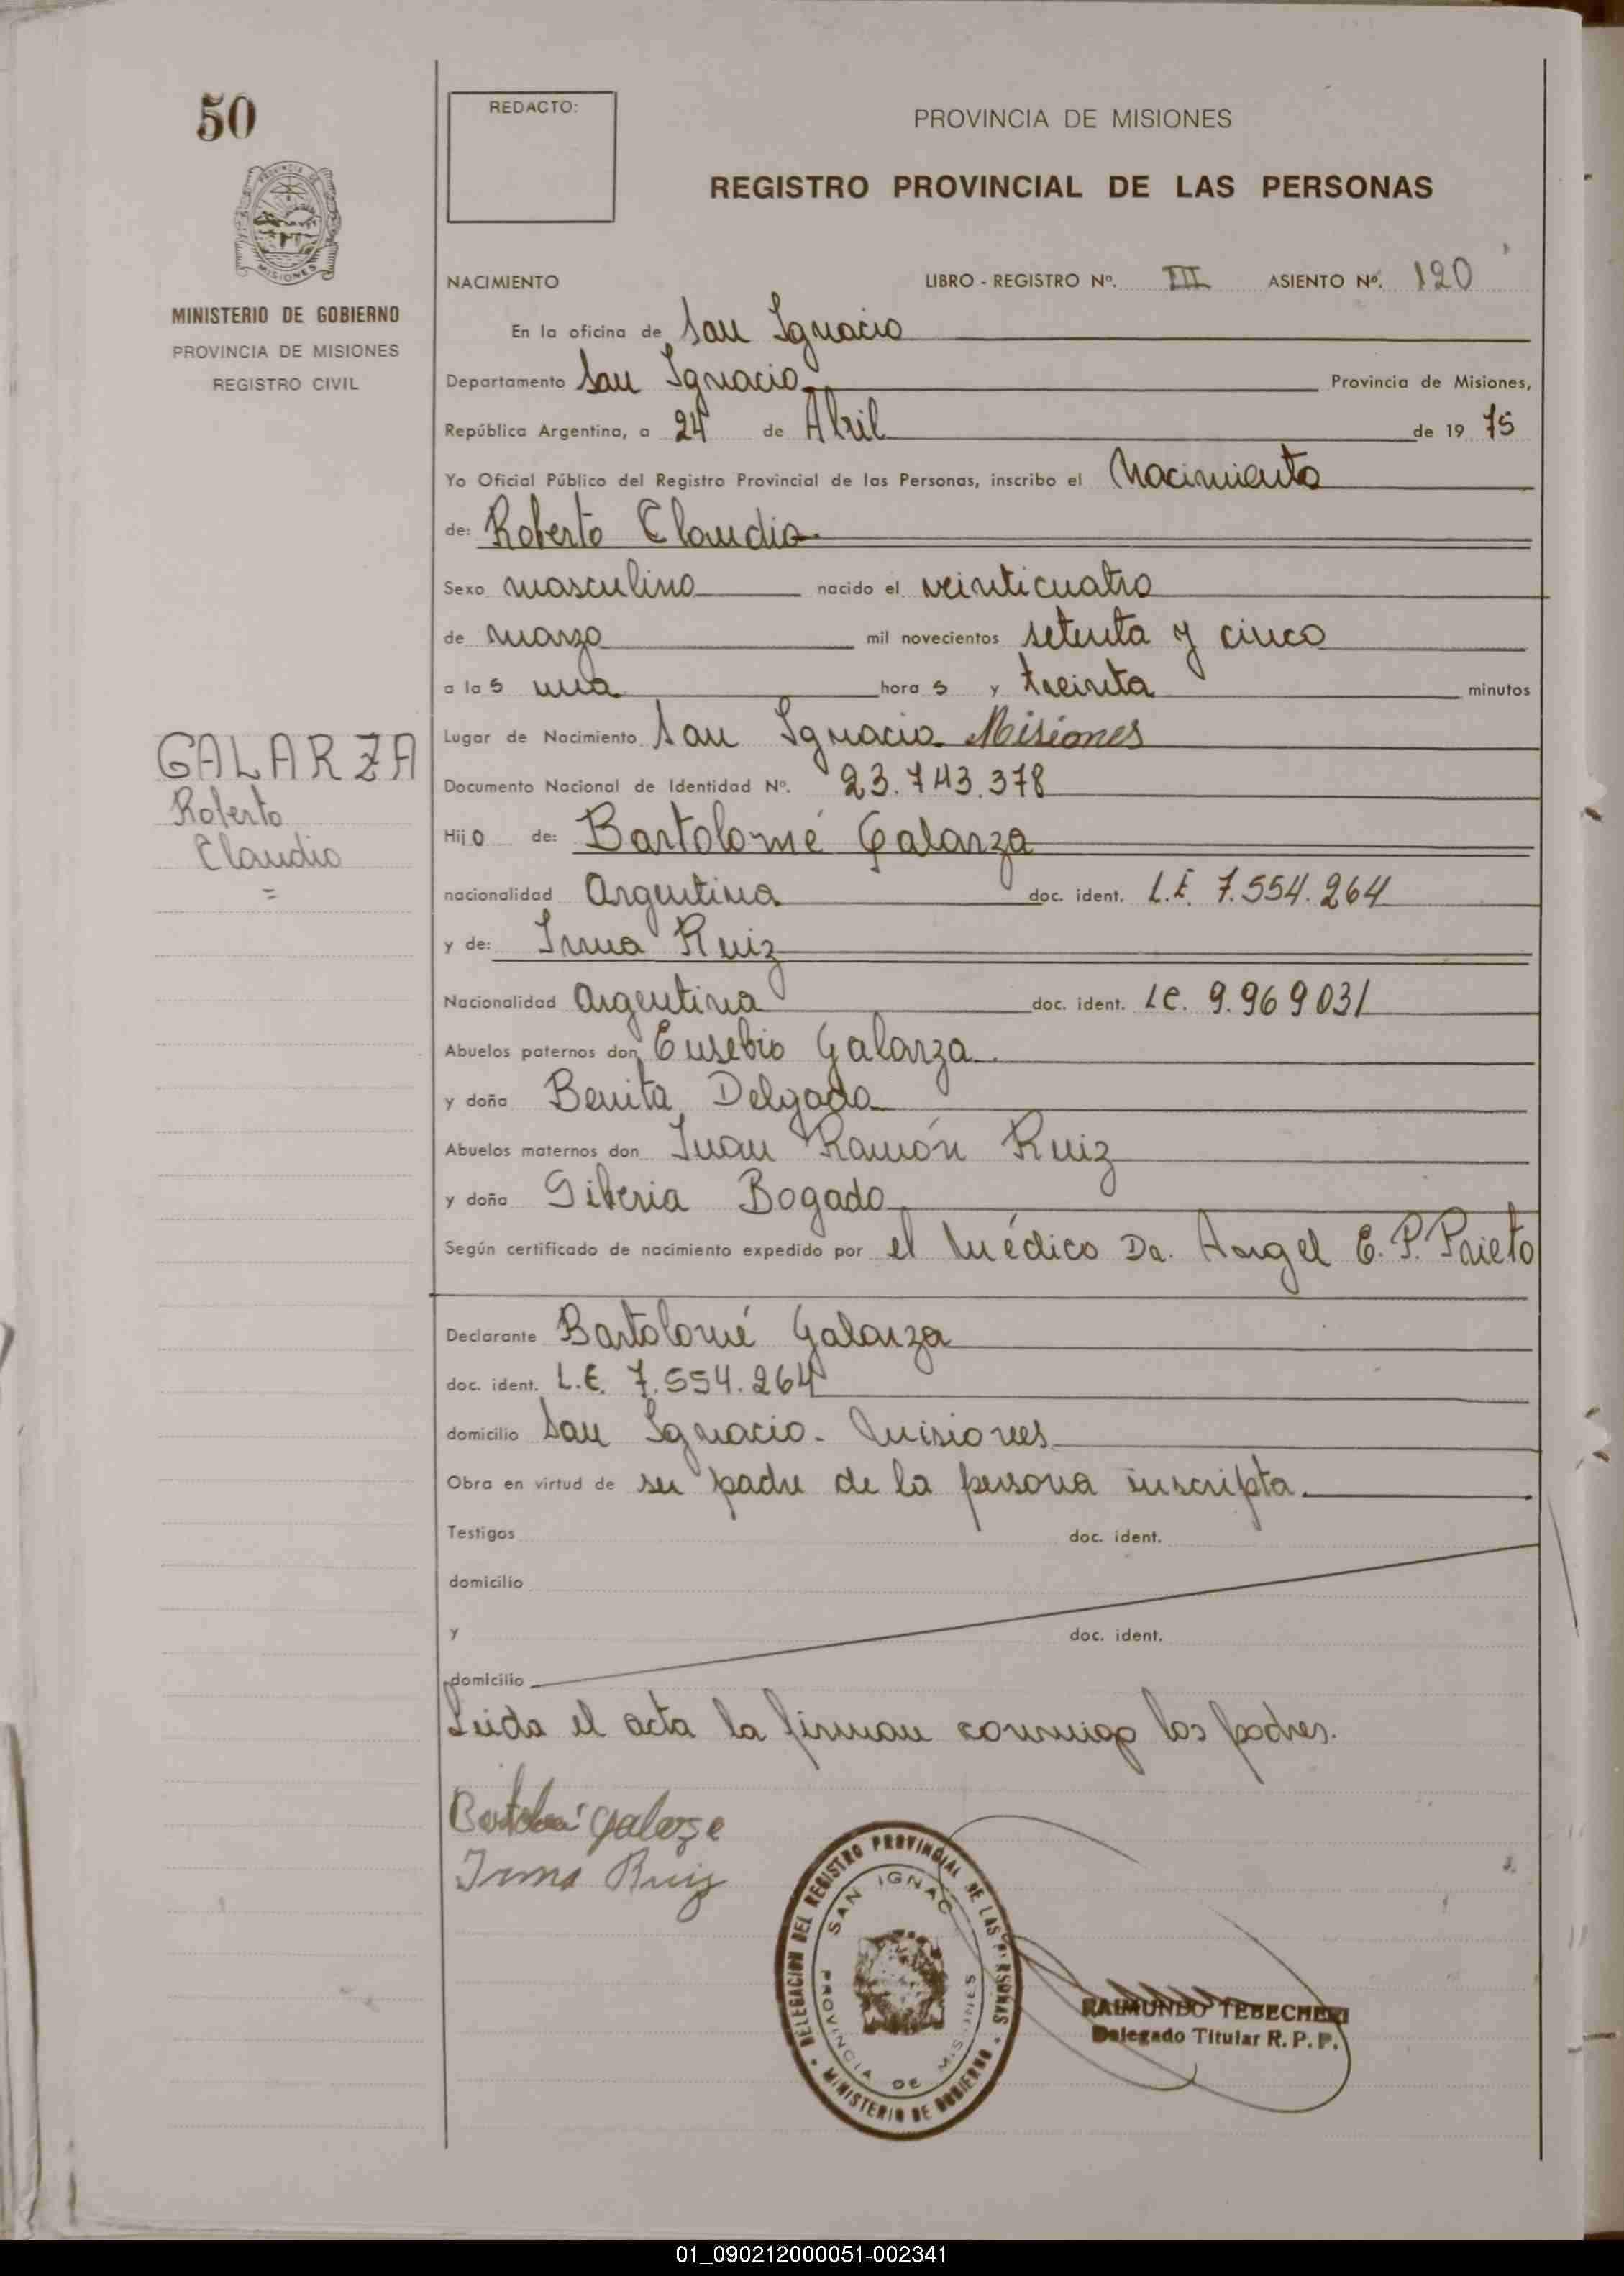 50
REDACTO:
PROVINCIA DE MISIONES
REGISTRO PROVINCIAL DE LAS PERSONAS
MINISTERIO DE GOBIERNO
PROVINCIA DE MISIONES
REGISTRO CIVIL
NACIMIENTO LIBRO - REGISTRO Nº. III ASIENTO Nº. 120
En la oficina de San Ignacio
Departamento San Ignacio Provincia de Misiones,
República Argentina, a 24 de Abril de 19 75
Yo Oficial Público del Registro Provincial de las Personas, inscribo el Nacimiento
de: Roberto Claudio
Sexo masculino nacido el veinticuatro
de marzo mil novecientos setenta y cinco
a las una horas y treinta minutos
Lugar de Nacimiento San Ignacio Misiones
GALARZA
Roberto
Claudio
Documento Nacional de Identidad Nº. 23.743.378
Hijo de: Bartolomé Galarza
nacionalidad Argentina doc. ident. L.E. 7.554.264
y de: Irma Ruiz
Nacionalidad Argentina doc. ident. LC. 9.969031
Abuelos paternos don Eusebio Galarza
y doña Benita Delgado
Abuelos maternos don Juan Ramón Ruiz
y doña Siberia Bogado
Según certificado de nacimiento expedido por el médico Dr. Angel E. P. Prieto
Declarante Bartolomé Galarza
doc. ident. L.E. 7.554.264
domicilio San Ignacio - Misiones
Obra en virtud de ser padre de la persona inscripta.
Testigos doc. ident.
domicilio
y doc. ident.
domicilio
Leida el acta la firman conmigo los padres.
Bartolomé Galarza
Irma Ruiz
DELEGACION DEL REGISTRO PROVINCIAL DE LAS PERSONAS
SAN IGNAC
PROVINCIA DE MISIONES
MINISTERIO DE GOBIERNO
RAIMUNDO TEBECHERI
Delegado Titular R. P. P.
01_090212000051-002341